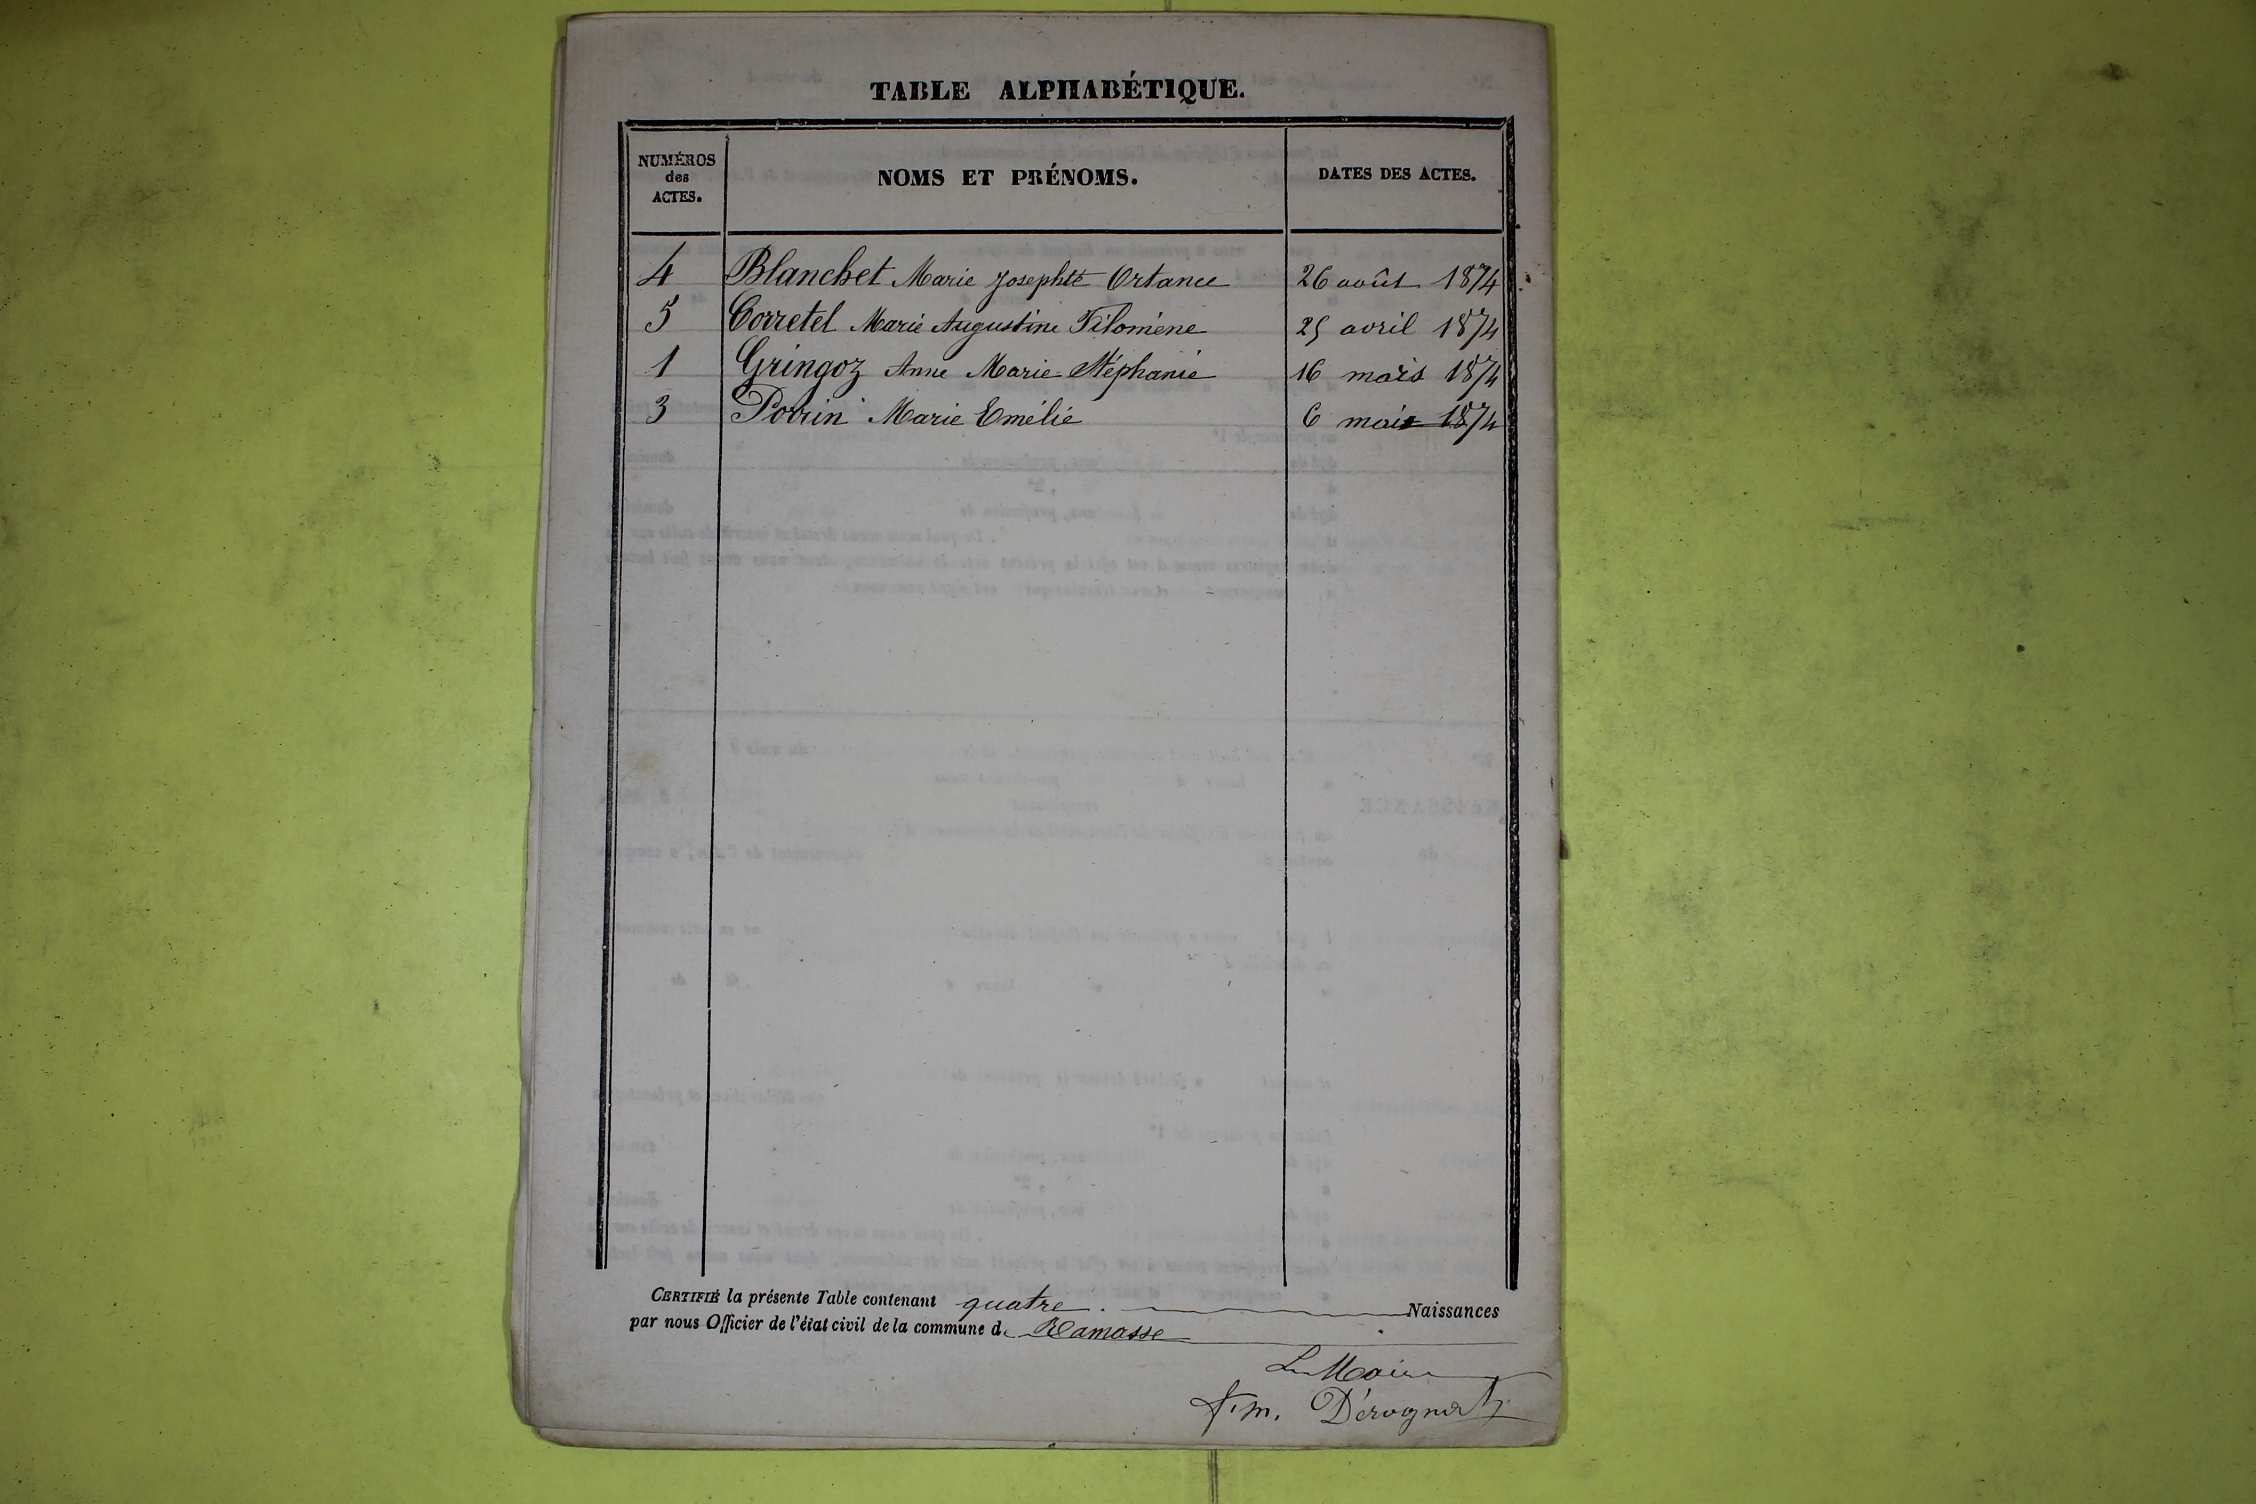 TABLE ALPHABÉTIQUE.
NUMÉROS des ACTES. NOMS ET PRÉNOMS. DATES DES ACTES.
4 Blanchet Marie Josephte Ortance 26 août 1874
5 Corretel Marie Augustine Filomène 25 avril 1874
1 Gringoz Anne Marie Stéphanie 16 mars 1874
3 Perrin Marie Emélie 6 mai 1874
CERTIFIÉ la présente Table contenant quatre. Naissances
par nous Officier de l'état civil de la commune de Ramasse
Le Maire